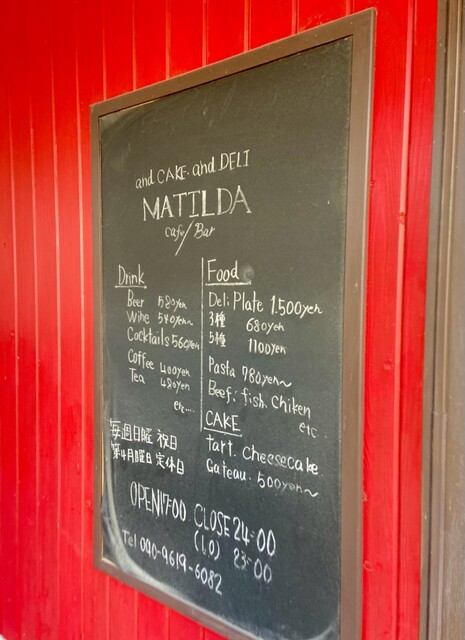 and CAKE. and DELI
MATILDA
Cafe/Bar
Drink
Beer 580yen
Wine 540yen~
Cocktails 560yen
Coffee 400yen
Tea 480yen
etc....
Food
Deli Plate 1.500yen
3種 680yen
5種 1100yen
Pasta 780yen~
Beef. fish. Chiken
etc..
CAKE
tart. Cheesecake
Gateau. 500yen~
毎週日曜 祝日
第4月曜日 定休日
OPEN17:00 CLOSE24:00
(L.O) 23:00
Tel 090-9619-6082